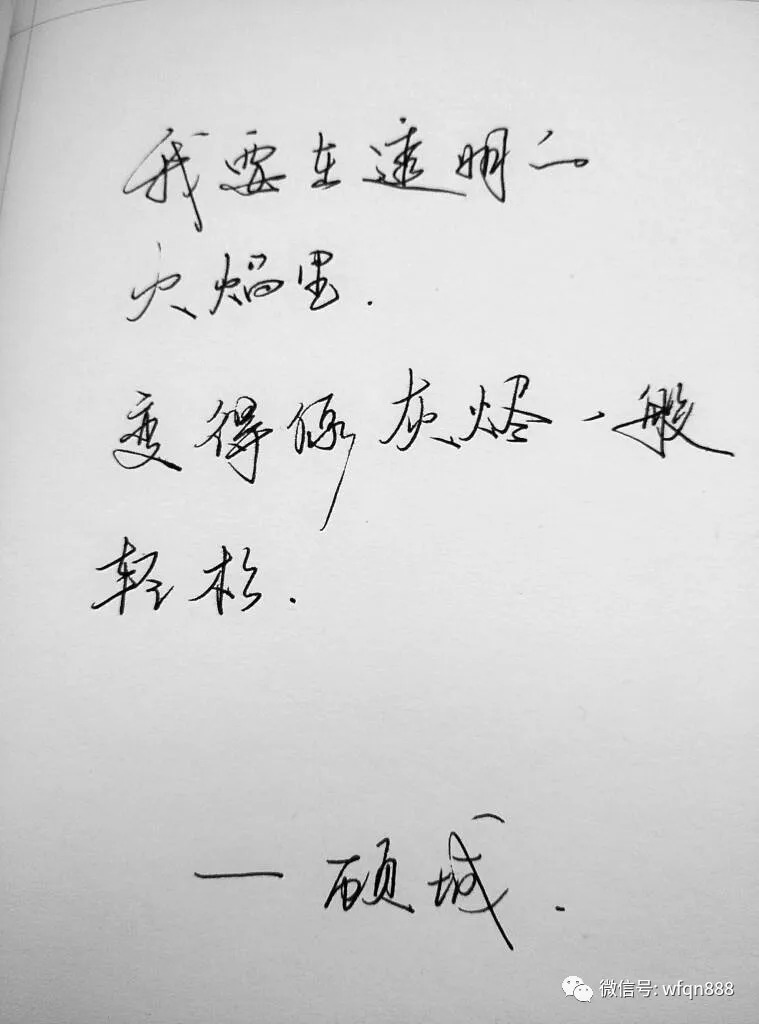 我要在透明的
火焰里.
变得像灰烬一般
轻松.
— 顾城.
微信号: wfqn888